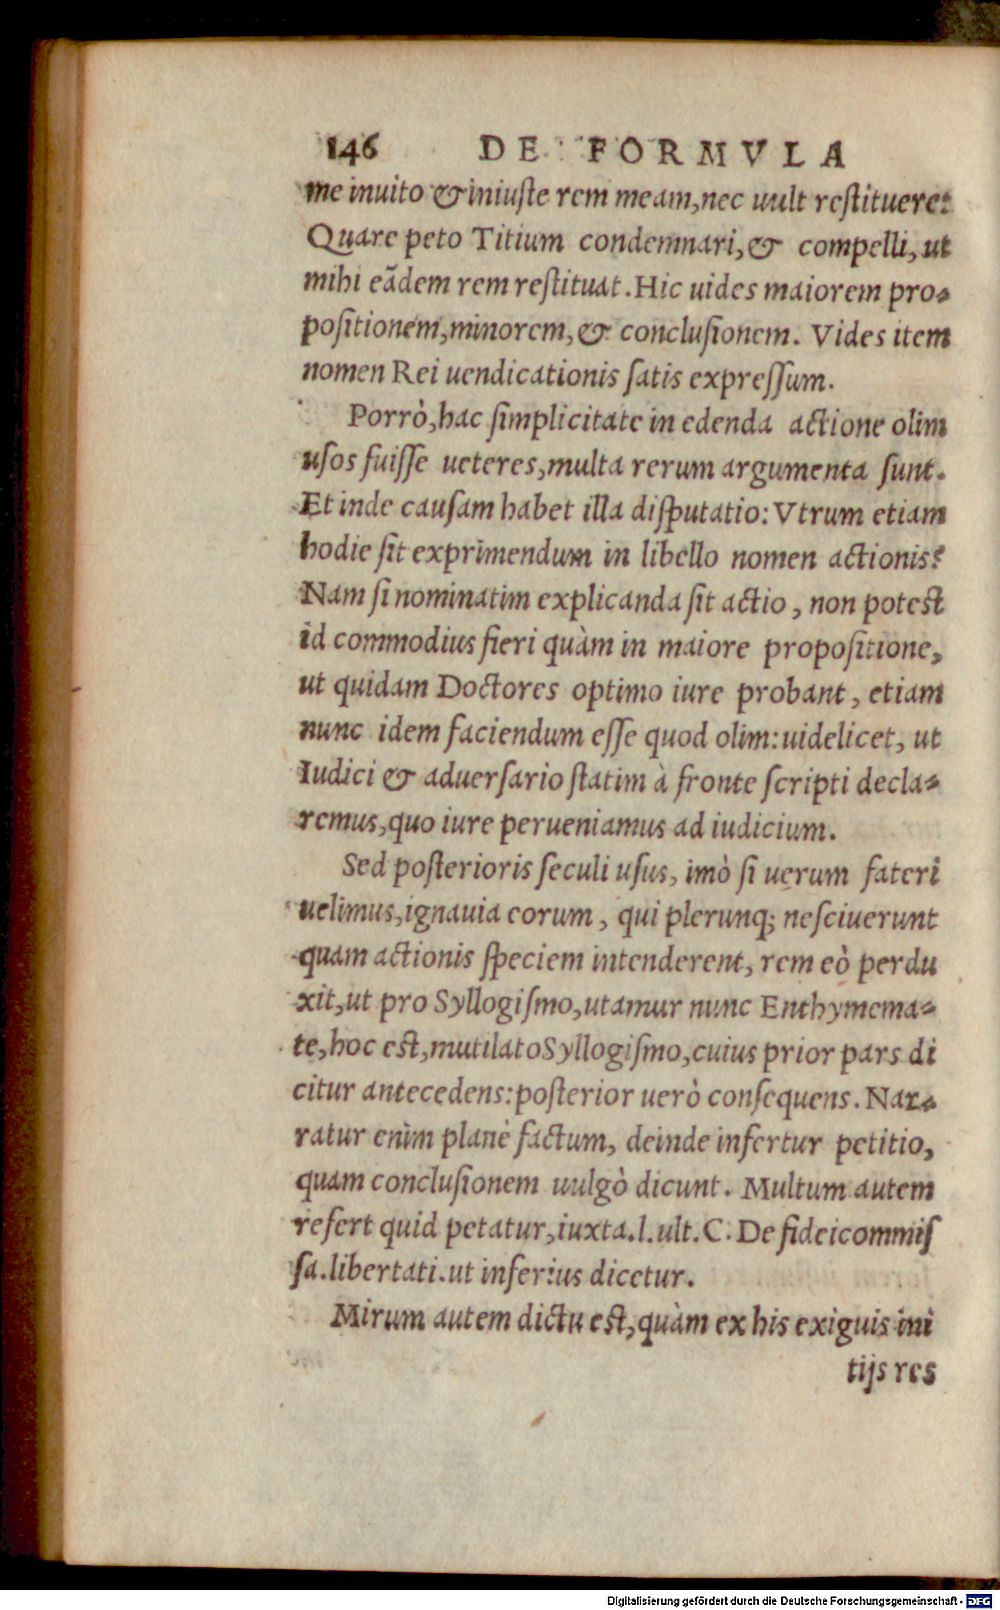 146 DE FORMVLA
me inuito & iniuſte rem meam, nec uult reſtituere:
Quare peto Titium condemnari, & compelli, ut
mihi eãdem rem reſtituat. Hic uides maiorem pro-
poſitionem, minorem, & concluſionem. Vides item
nomen Rei uendicationis ſatis expreſſum.
Porrò, hac ſimplicitate in edenda actione olim
uſos fuiſſe ueteres, multa rerum argumenta ſunt.
Et inde cauſam habet illa diſputatio: Vtrum etiam
hodie ſit exprimendum in libello nomen actionis?
Nam ſi nominatim explicanda ſit actio, non poteſt
id commodius fieri quàm in maiore propoſitione,
ut quidam Doctores optimo iure probant, etiam
nunc idem faciendum eſſe quod olim: uidelicet, ut
Iudici & aduerſario ſtatim à fronte ſcripti decla-
remus, quo iure perueniamus ad iudicium.
Sed poſterioris ſeculi uſus, imò ſi uerum fateri
uelimus, ignauia eorum, qui plerunq; neſciuerunt
quam actionis ſpeciem intenderent, rem eò perdu
xit, ut pro Syllogiſmo, utamur nunc Enthymema-
te, hoc eſt, mutilato Syllogiſmo, cuius prior pars di
citur antecedens: poſterior uerò conſequens. Nar-
ratur enim planè factum, deinde infertur petitio,
quam concluſionem uulgò dicunt. Multum autem
refert quid petatur, iuxta. l. ult. C. De fideicommiſ
ſa. libertati. ut inferius dicetur.
Mirum autem dictu eſt, quàm ex his exiguis ini
tijs res
Digitalisierung gefördert durch die Deutsche Forschungsgemeinschaft - DFG